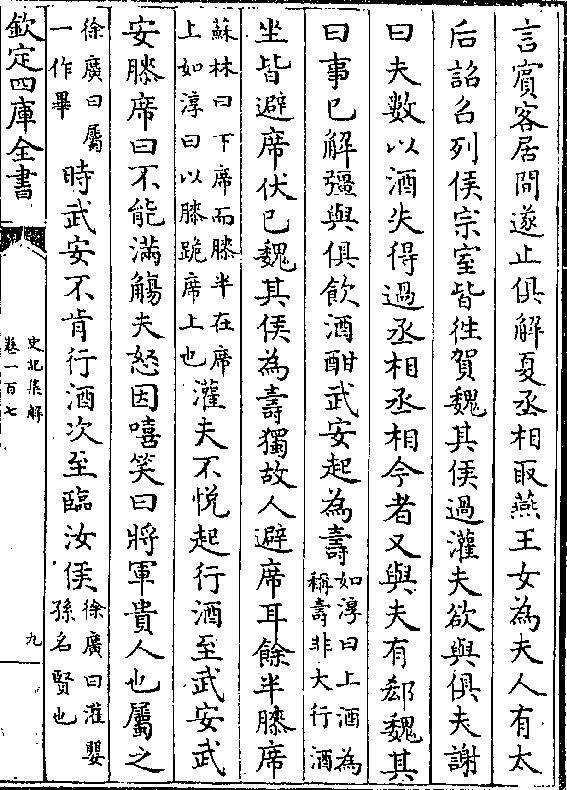 言賓客居間遂止俱解夏丞相取燕王女為夫人有太
后詔召列侯宗室皆徃賀魏其侯過灌夫欲與俱夫謝
曰夫數以酒失得過丞相丞相今者又與夫有郄魏其
曰事已解彊與俱飲酒酣武安起為壽如淳曰上酒為
稱壽非大行酒
坐皆避席伏已魏其侯為壽獨故人避席耳餘半膝席
蘇林曰下席而膝半在席
上如淳曰以膝跪席上也
灌夫不悅起行酒至武安武
安膝席曰不能滿觴夫怒因嘻笑曰將軍貴人也屬之
徐廣曰屬
一作畢
時武安不肯行酒次至臨汝侯徐廣曰灌嬰
孫名賢也
欽定四庫全書
史記集解
卷一百七
九